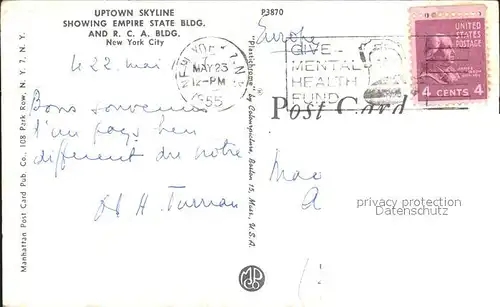 UPTOWN SKYLINE
SHOWING EMPIRE STATE BLDG.
AND R. C. A. BLDG.
New York City
P3870
Europe
le 22 mai
NEW YORK, N.Y.
MAY 23
12-PM
1955
GIVE
MENTAL
HEALTH
FUND
UNITED
STATES
POSTAGE
4 CENTS 4
Post Card
Bons souvenirs
d'un pays bien
différent du notre
H.
Mac
A
privacy protection
Datenschutz
Manhattan Post Card Pub. Co., 108 Park Row, N. Y. 7, N. Y.
"Plastichrome" by Colourpicture, Boston 15, Mass., U.S.A.